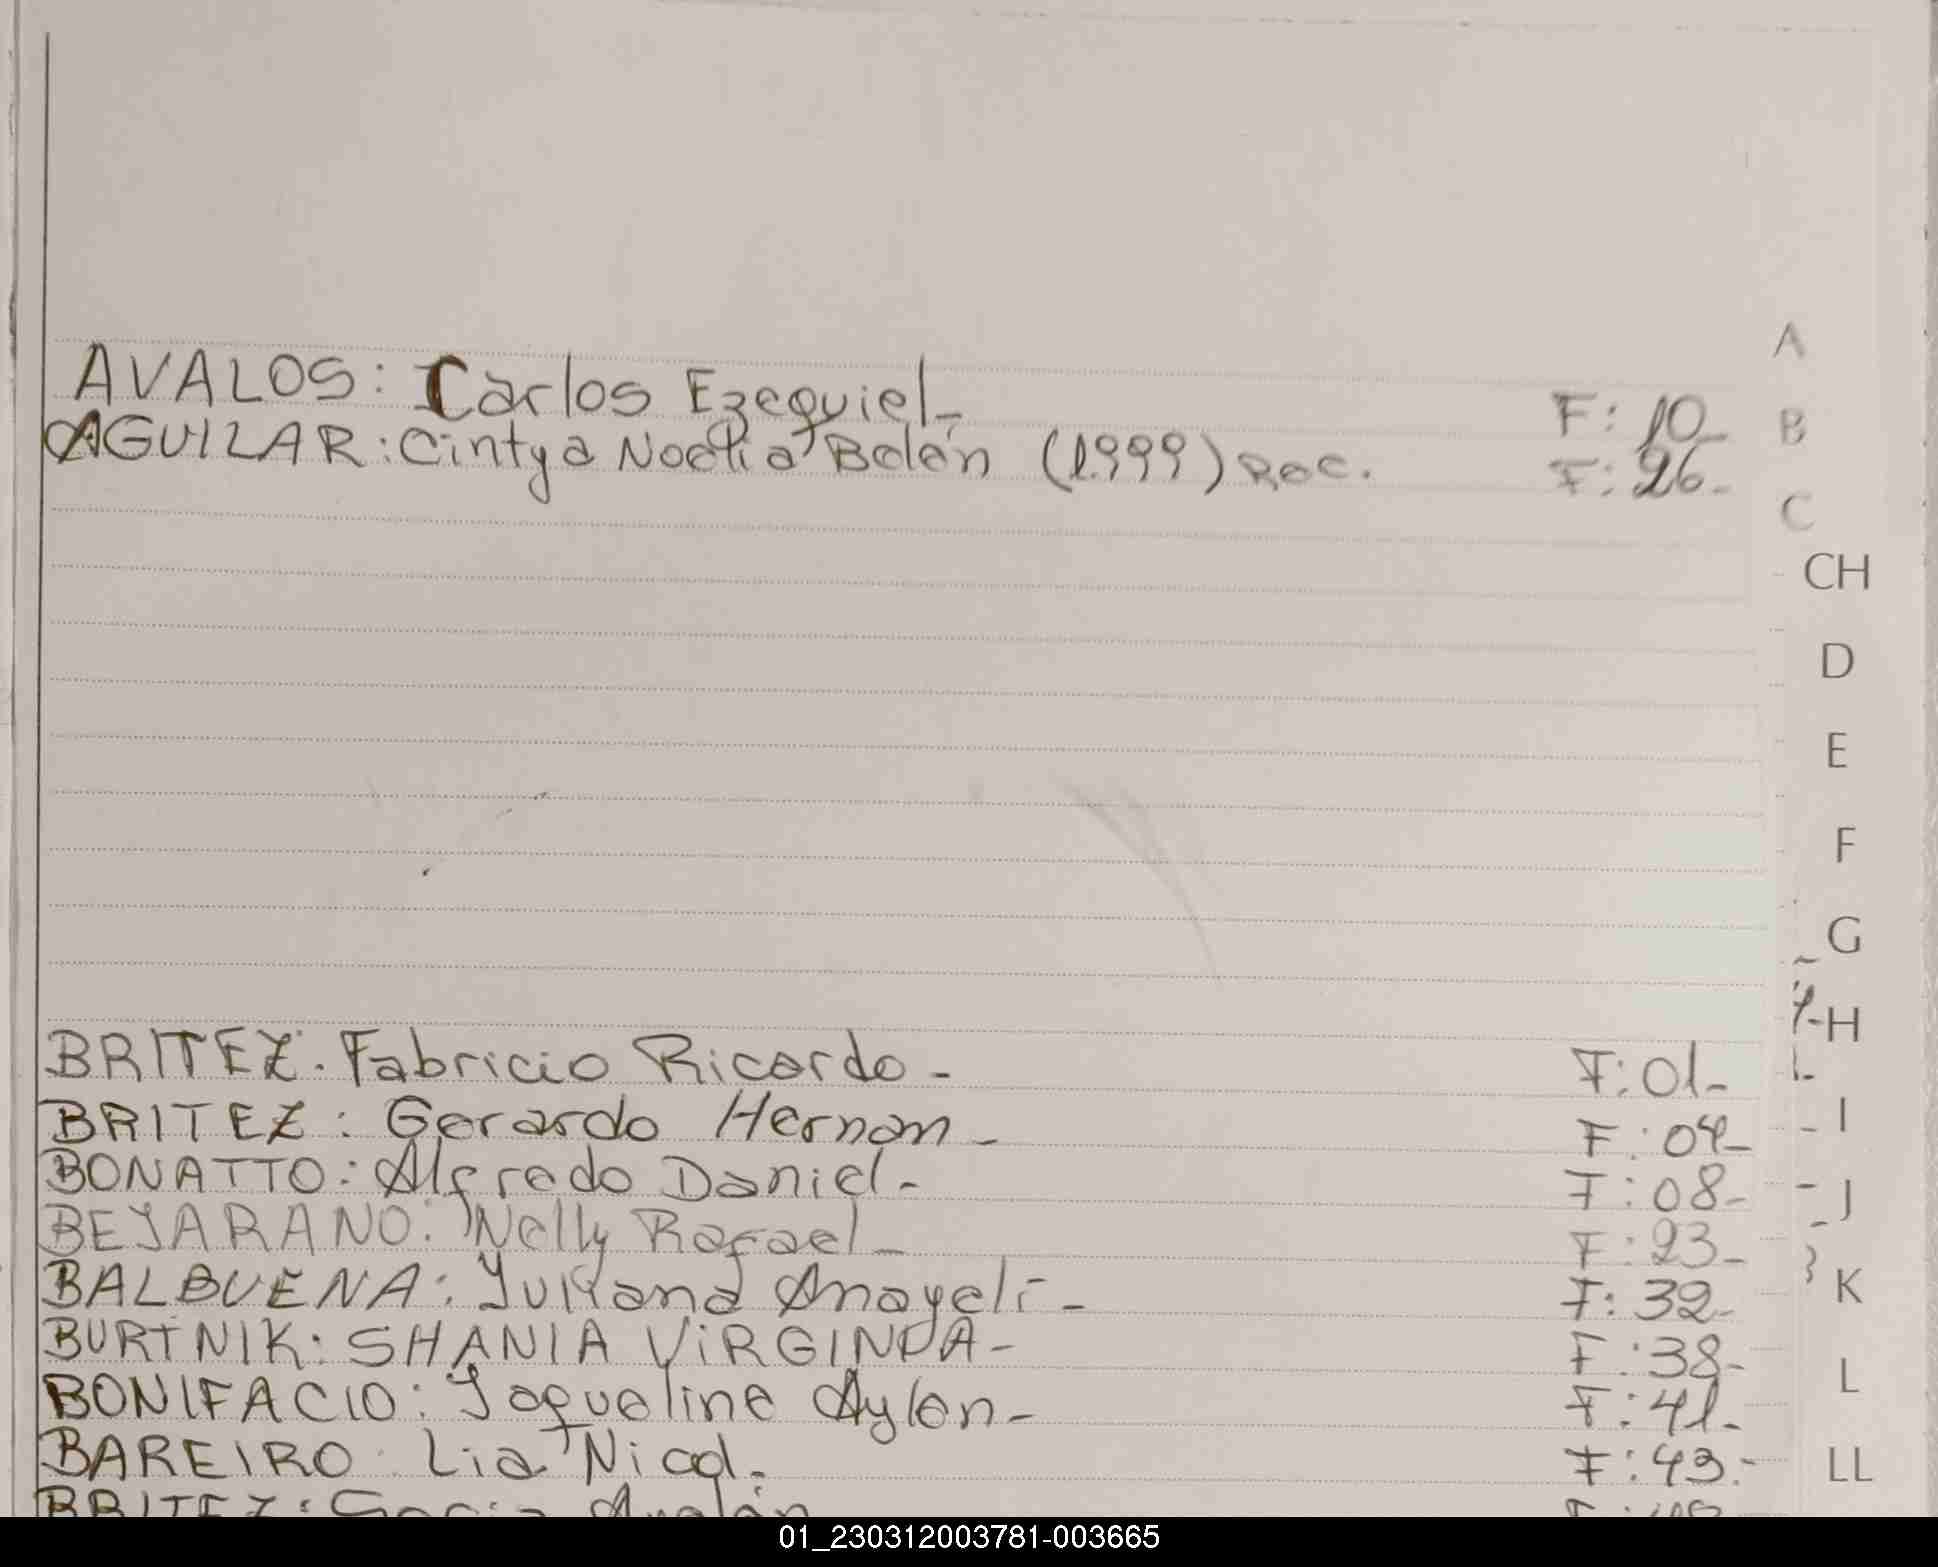 AVALOS: Carlos Ezequiel- F: 10-
AGUILAR: Cintya Noelia Belén (1.999) Rec. F: 26-
BRITEZ. Fabricio Ricardo- F: 01-
BRITEZ: Gerardo Hernan- F: 04-
BONATTO: Alfredo Daniel- F: 08-
BEJARANO: Nelly Rafael- F: 23-
BALBUENA: Yuliana Anayeli- F: 32-
BURTNIK: SHANIA F: 38-
BONIFACIO: Jaqueline Aylen- F: 41-
BAREIRO: Lia Nicol. F: 43.-
BRITEZ:
A
B
C
CH
D
E
F
G
H
I
J
K
L
LL
01_230312003781-003665